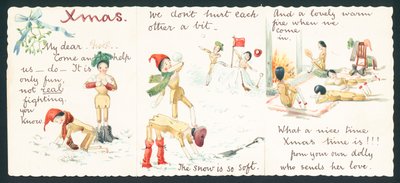 Xmas.
My dear
Come and help
us — do — It is
only fun,
not real
fighting
you
know
We don't hurt each
other a bit.
The snow is so soft.
And a lovely warm
fire when we
come
in.
What a nice time
Xmas time is!!!
from your own dolly
who sends her love.